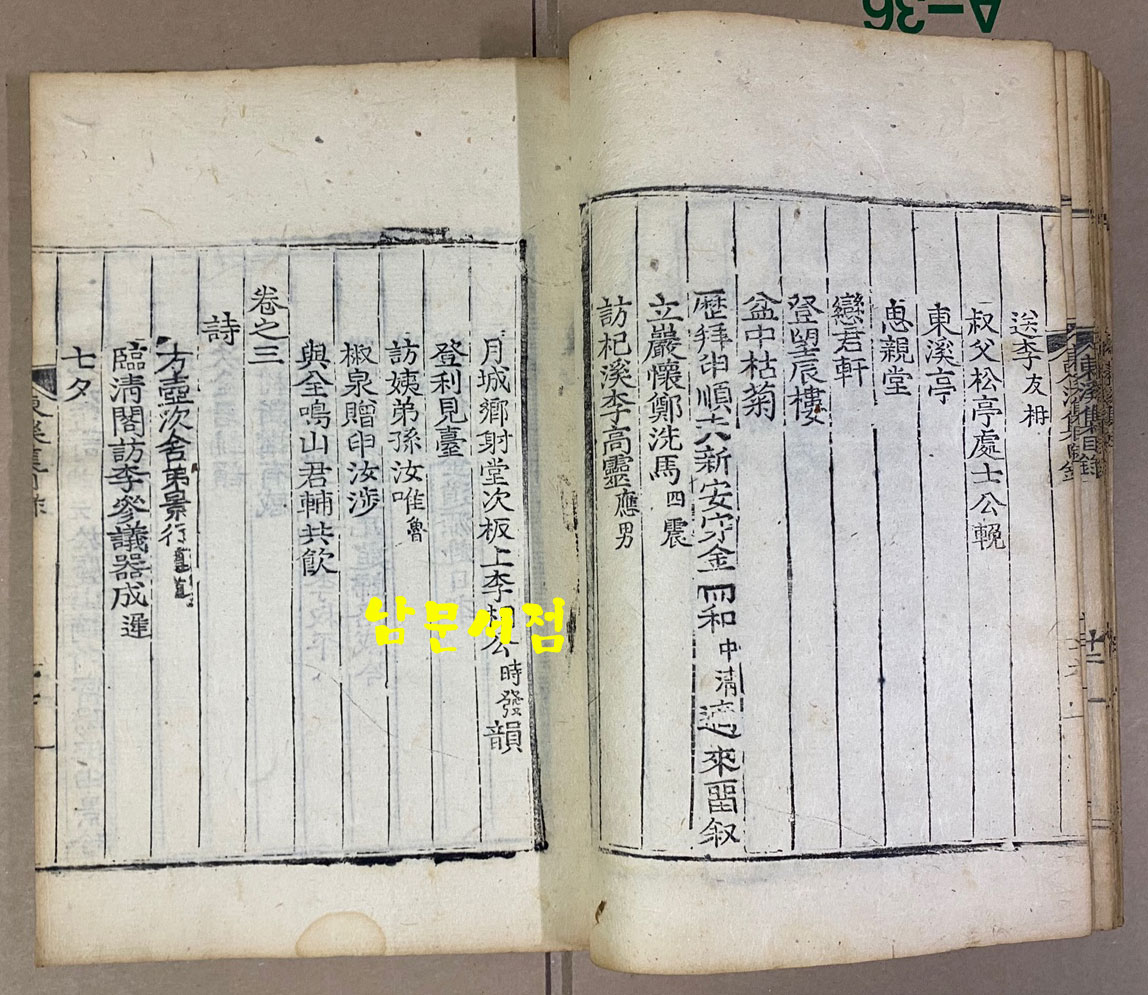 送李友栴
叔父松亭處士公輓
東溪亭
思親堂
戀君軒
登望辰樓
盆中枯菊
歷拜申順六新安守金 冊和 中清 適來留叙
立巖懷鄭洗馬 四震
訪杞溪李高靈 應男
月城鄉射堂次板上李相公 時發 韻
登利見臺
訪姨弟孫汝唯 魯
椒泉贈申汝涉
與全鳴山君輔共飲
卷之三
詩
方壺次舍弟景行
臨清閣訪李參議器成 遲
七夕
東溪集目錄
十二
남문서점
A-36